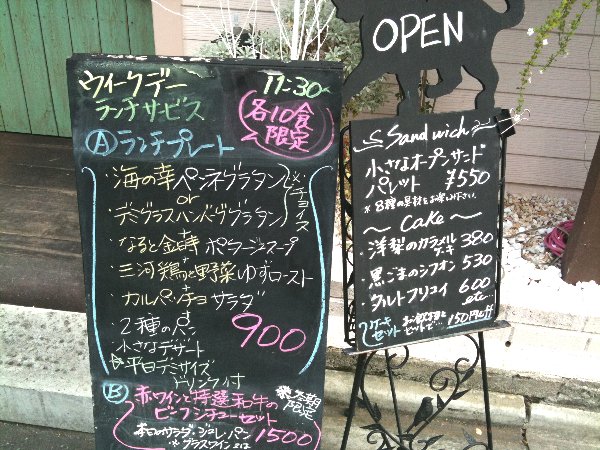 ウィークデー 11:30〜
ランチサービス
各10食
限定
Ⓐランチプレート
・海の幸ペンネグラタン
or
デミグラスハンバーググラタン
チョイス
+
・なると金時ポタージュスープ
+
・三河鶏と野菜ゆずロースト
+
・カルパッチョサラダ
・2種のパン
・小さなデザート
900
☆平日デミサイズ
ドリンク付
Ⓑ赤ワインと特選和牛の
ビーフシチューセット
期間
限定
本日のサラダ・ジュレ パン
1500
OPEN
Sandwich
小さなオープンサンド
パレット ¥550
※8種の具材をお楽しみ下さい。
〜Cake〜
・洋梨のカラメルケーキ 380
・黒ごまのシフォン 530
・ヴェルトフリュイ 600
etc
ケーキセット お飲物とセットで… 150円引